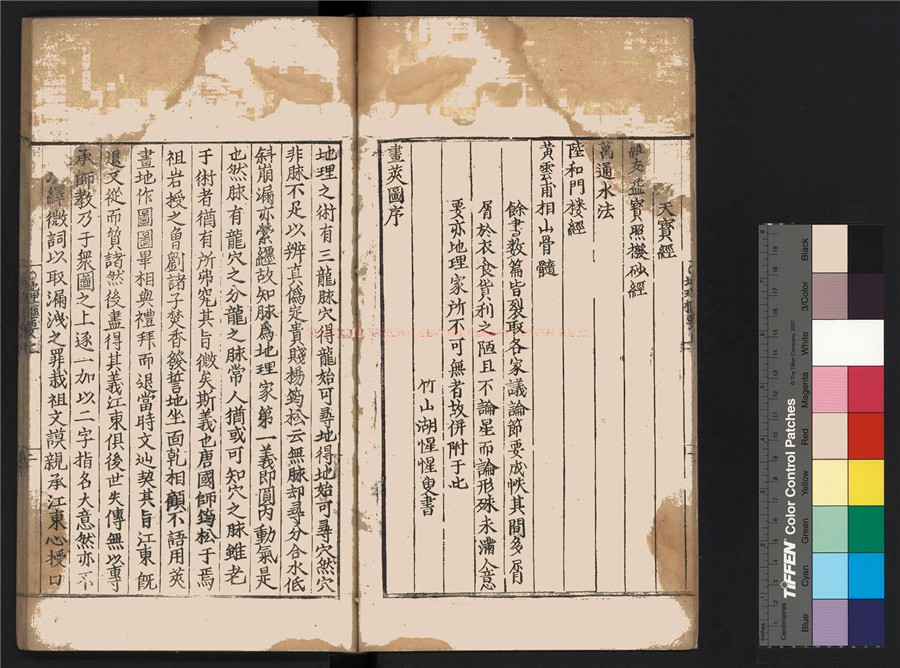 天寶經
寶照撥砂經
萬通水法
陸和門楼經
黃雲甫相山骨髓
餘書数篇皆裂取各家議論節要成帙其間多屑
屑於衣食貨利之陋且不論星而論形殊未滿人意
要亦地理家所不可無者故併附于此
竹山湖惺惺叟書
畫莢圖序
地理之術有三龍脉穴得龍始可尋地得地始可尋穴然穴
非脉不足以辨真偽定貴賤楊筠松云無脉却尋分合水低
斜崩漏亦縈纒故知脉為地理家第一義即頂內動氣是
也然脉有龍穴之分龍之脉常人猶或可知穴之脉雖老
于術者猶有所弗究其旨微矣斯義也唐國師筠松子焉
祖岩授之曾劉諸子焚香發誓地坐面乾相顧不語用莢
畫地作圖圖畢相與禮拜而退當時文辿契其旨江東旣
退又從而質諸然後盡得其義江東俱後世失傳無以專
承師教乃于衆圖之上逐一加以二字指名大意然亦不
繹微詞以取漏洩之罪哉祖文謨親承江東心授口
TIFFEN Color Control Patches
© The Tiffen Company, 2007
Centimetres
Inches
Blue
Cyan
Green
Yellow
Red
Magenta
White
3/Color
Black